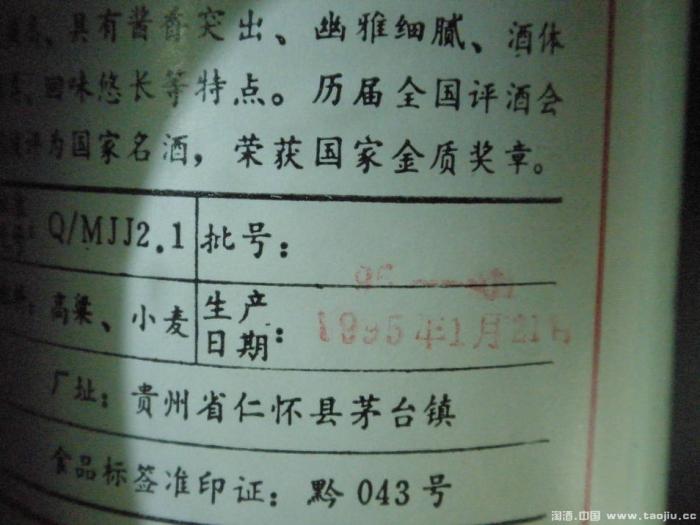 、具有酱香突出、幽雅细腻、酒体
、回味悠长等特点。历届全国评酒会
评为国家名酒，荣获国家金质奖章。
Q/MJJ2.1 批号：
高粱、小麦 生产日期： 1995年1月21日
厂址：贵州省仁怀县茅台镇
食品标签准印证：黔043号
淘酒.中国 www.taojiu.cc